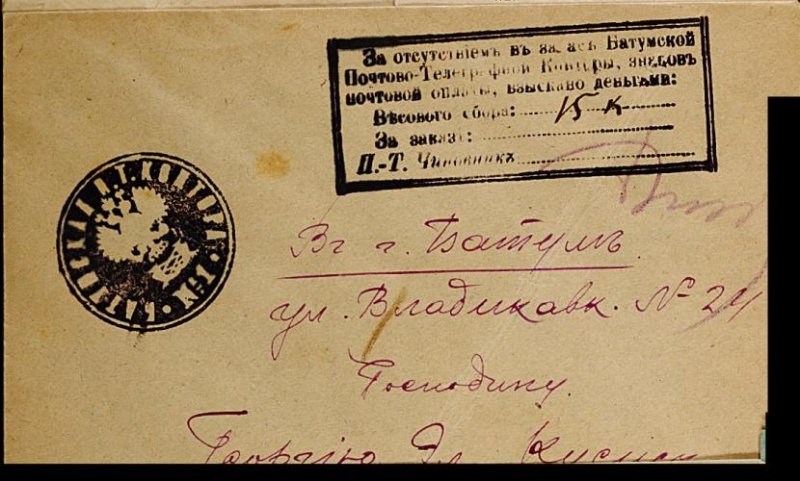 За отсутствіемъ въ запасѣ Батумской
Почтово-Телеграфной Конторы, знаковъ
почтовой оплаты, взыскано деньгами:
Вѣсового сбора: 15 к
За заказъ:
П.-Т. Чиновникъ
Въ г. Батумъ
ул. Владикавк. № 24
Господину
Георгію